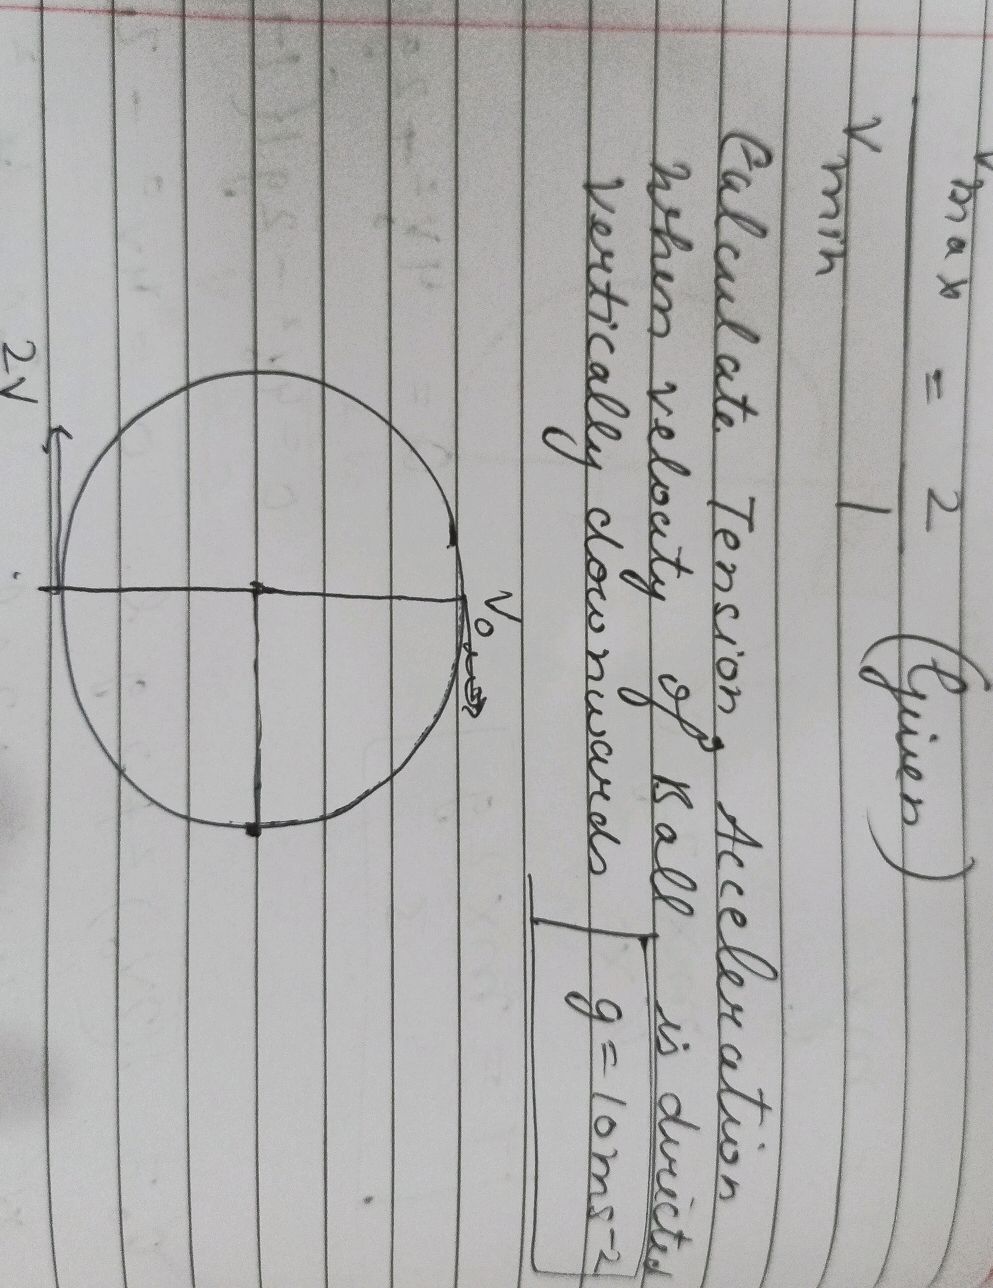 Vmax = 2 (Given)
Vmin 1
Calculate Tension, Acceleration
when velocity of Ball is directed
vertically downwards g = 10ms⁻²
V₀
2V